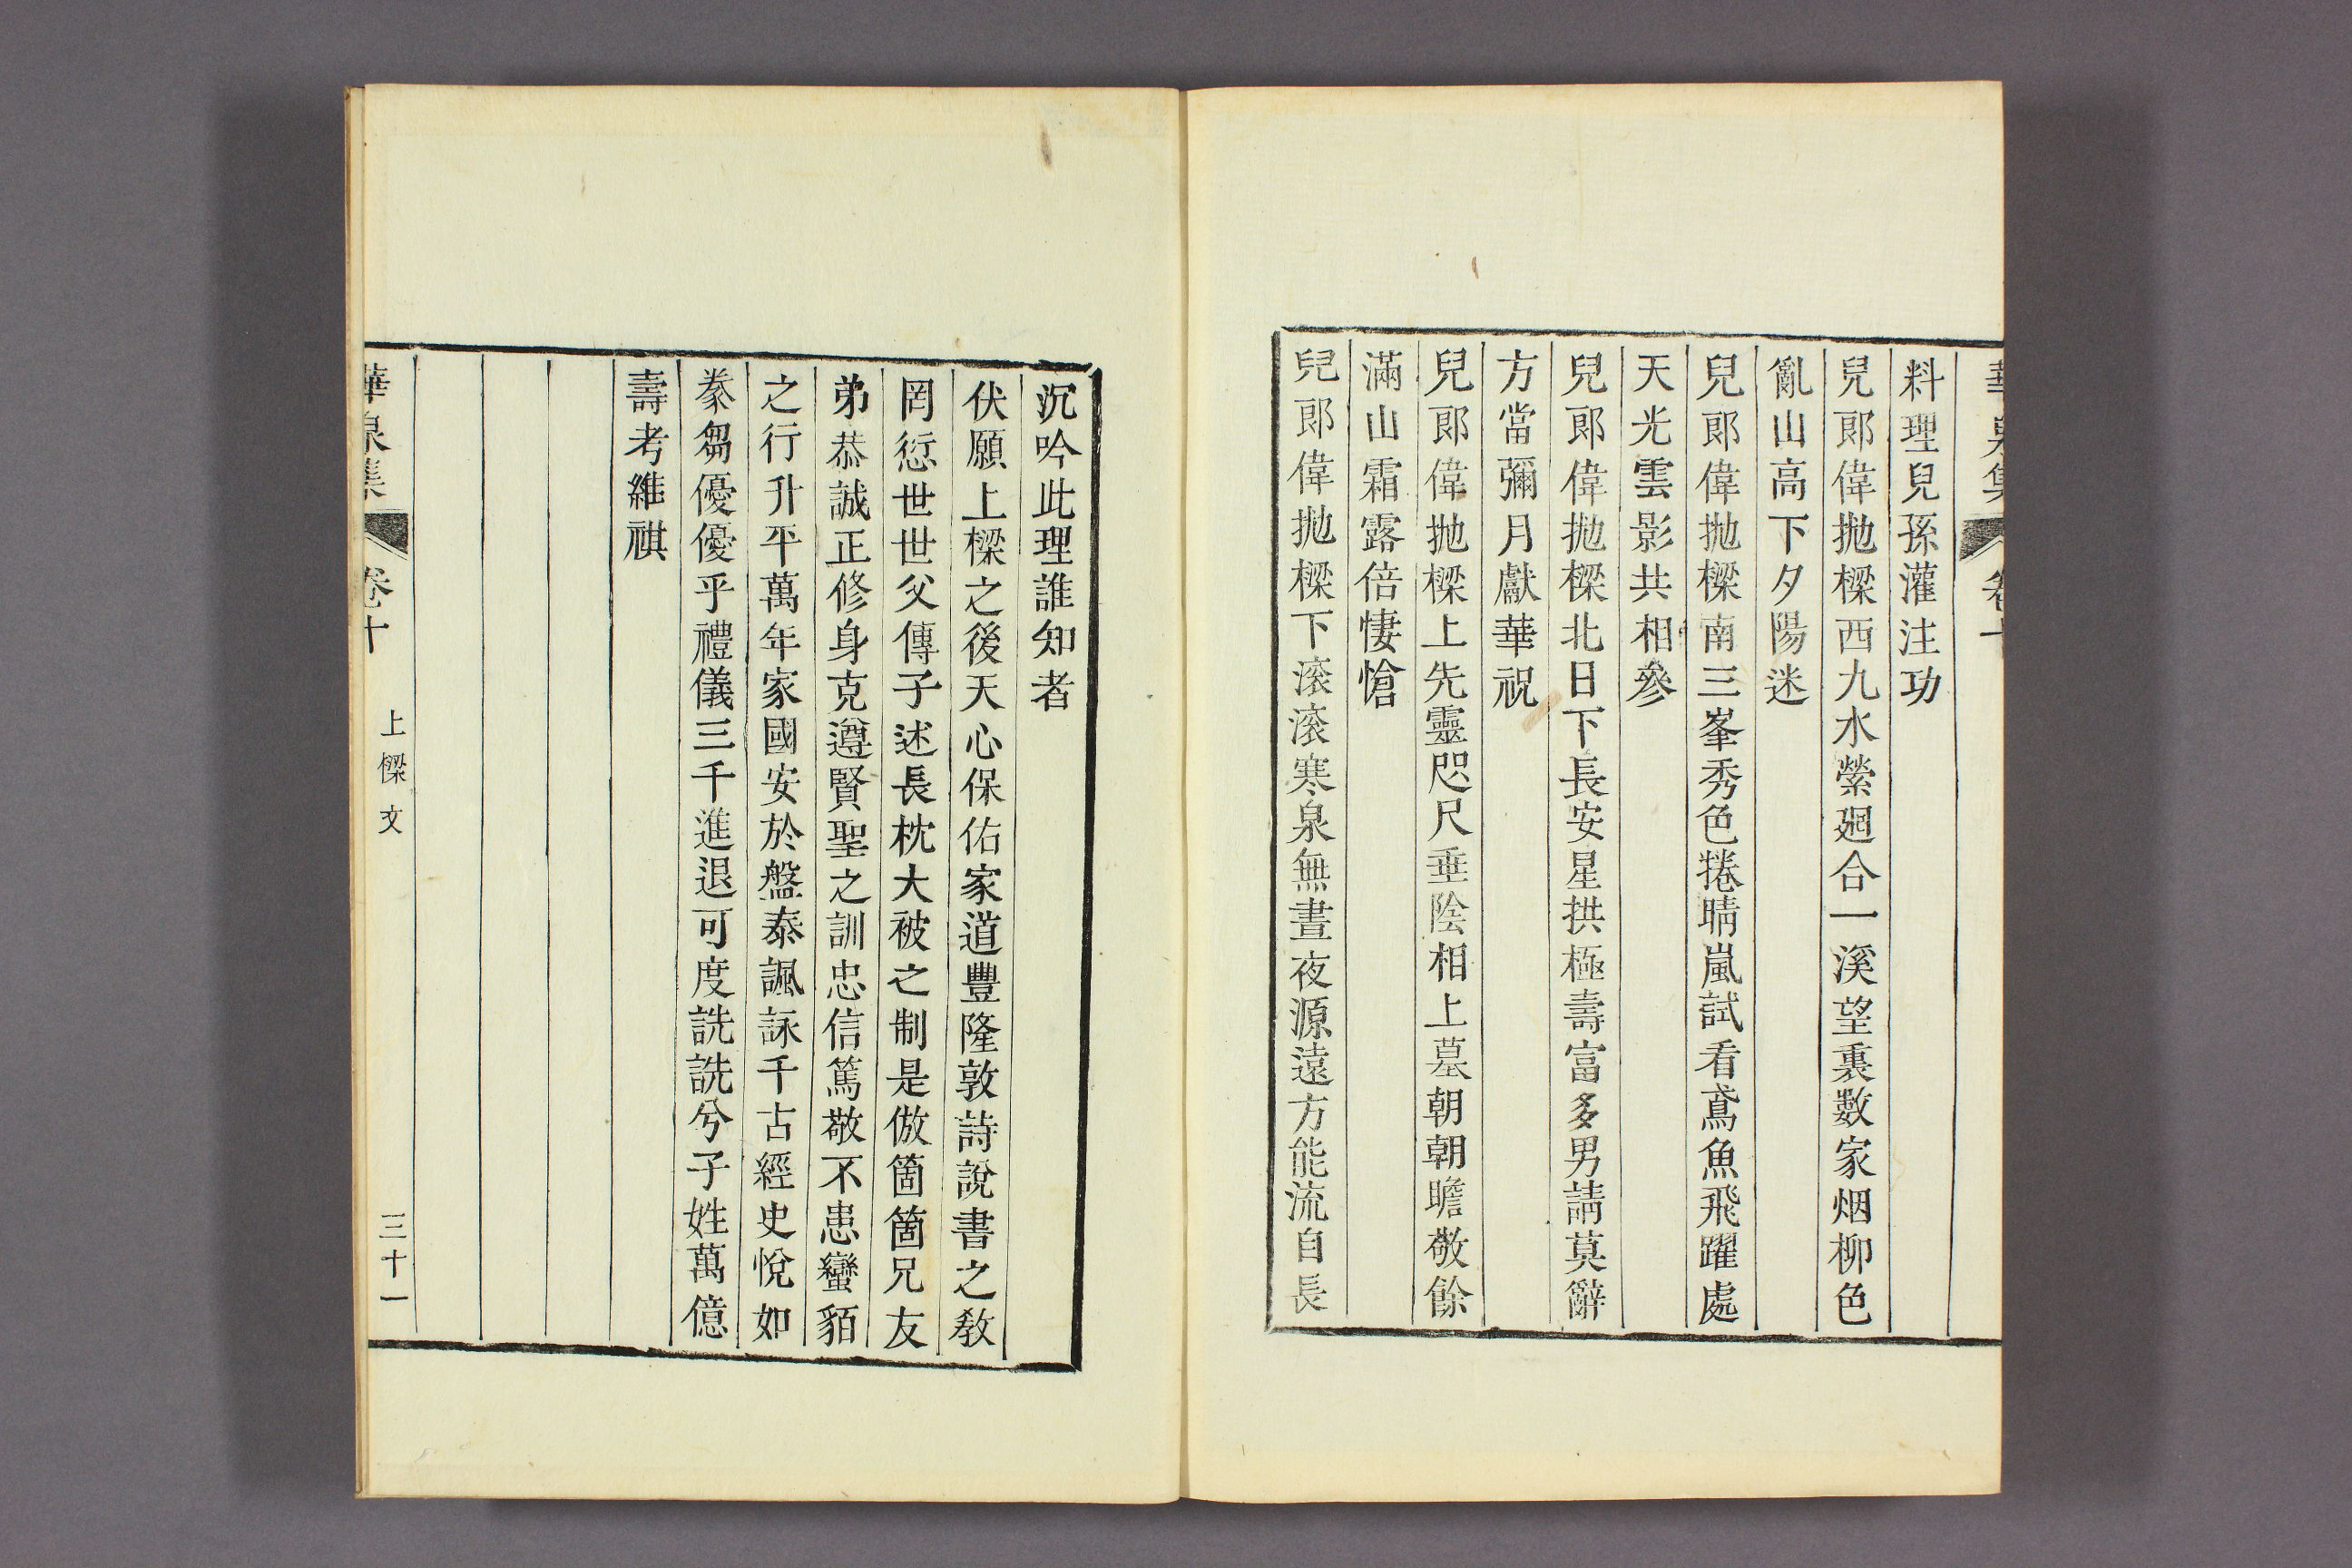 料理兒孫灌注功
兒郞偉拋樑西九水縈廻合一溪望裏數家烟柳色
亂山高下夕陽迷
兒郞偉拋樑南三峯秀色捲晴嵐試看鳶魚飛躍處
天光雲影共相參
兒郞偉拋樑北日下長安星拱極壽富多男請莫辭
方當彌月獻華祝
兒郞偉拋樑上先靈咫尺垂陰相上墓朝朝瞻敬餘
滿山霜露倍悽愴
兒郞偉拋樑下滚滚寒泉無晝夜源遠方能流自長
沉吟此理誰知者
伏願上樑之後天心保佑家道豐隆敦詩說書之敎
罔愆世世父傳子述長枕大被之制是倣箇箇兄友
弟恭誠正修身克遵賢聖之訓忠信篤敬不患蠻貊
之行升平萬年家國安於盤泰諷詠千古經史悅如
豢芻優優乎禮儀三千進退可度詵詵兮子姓萬億
壽考維祺
華泉集 卷十 上樑文 三十一